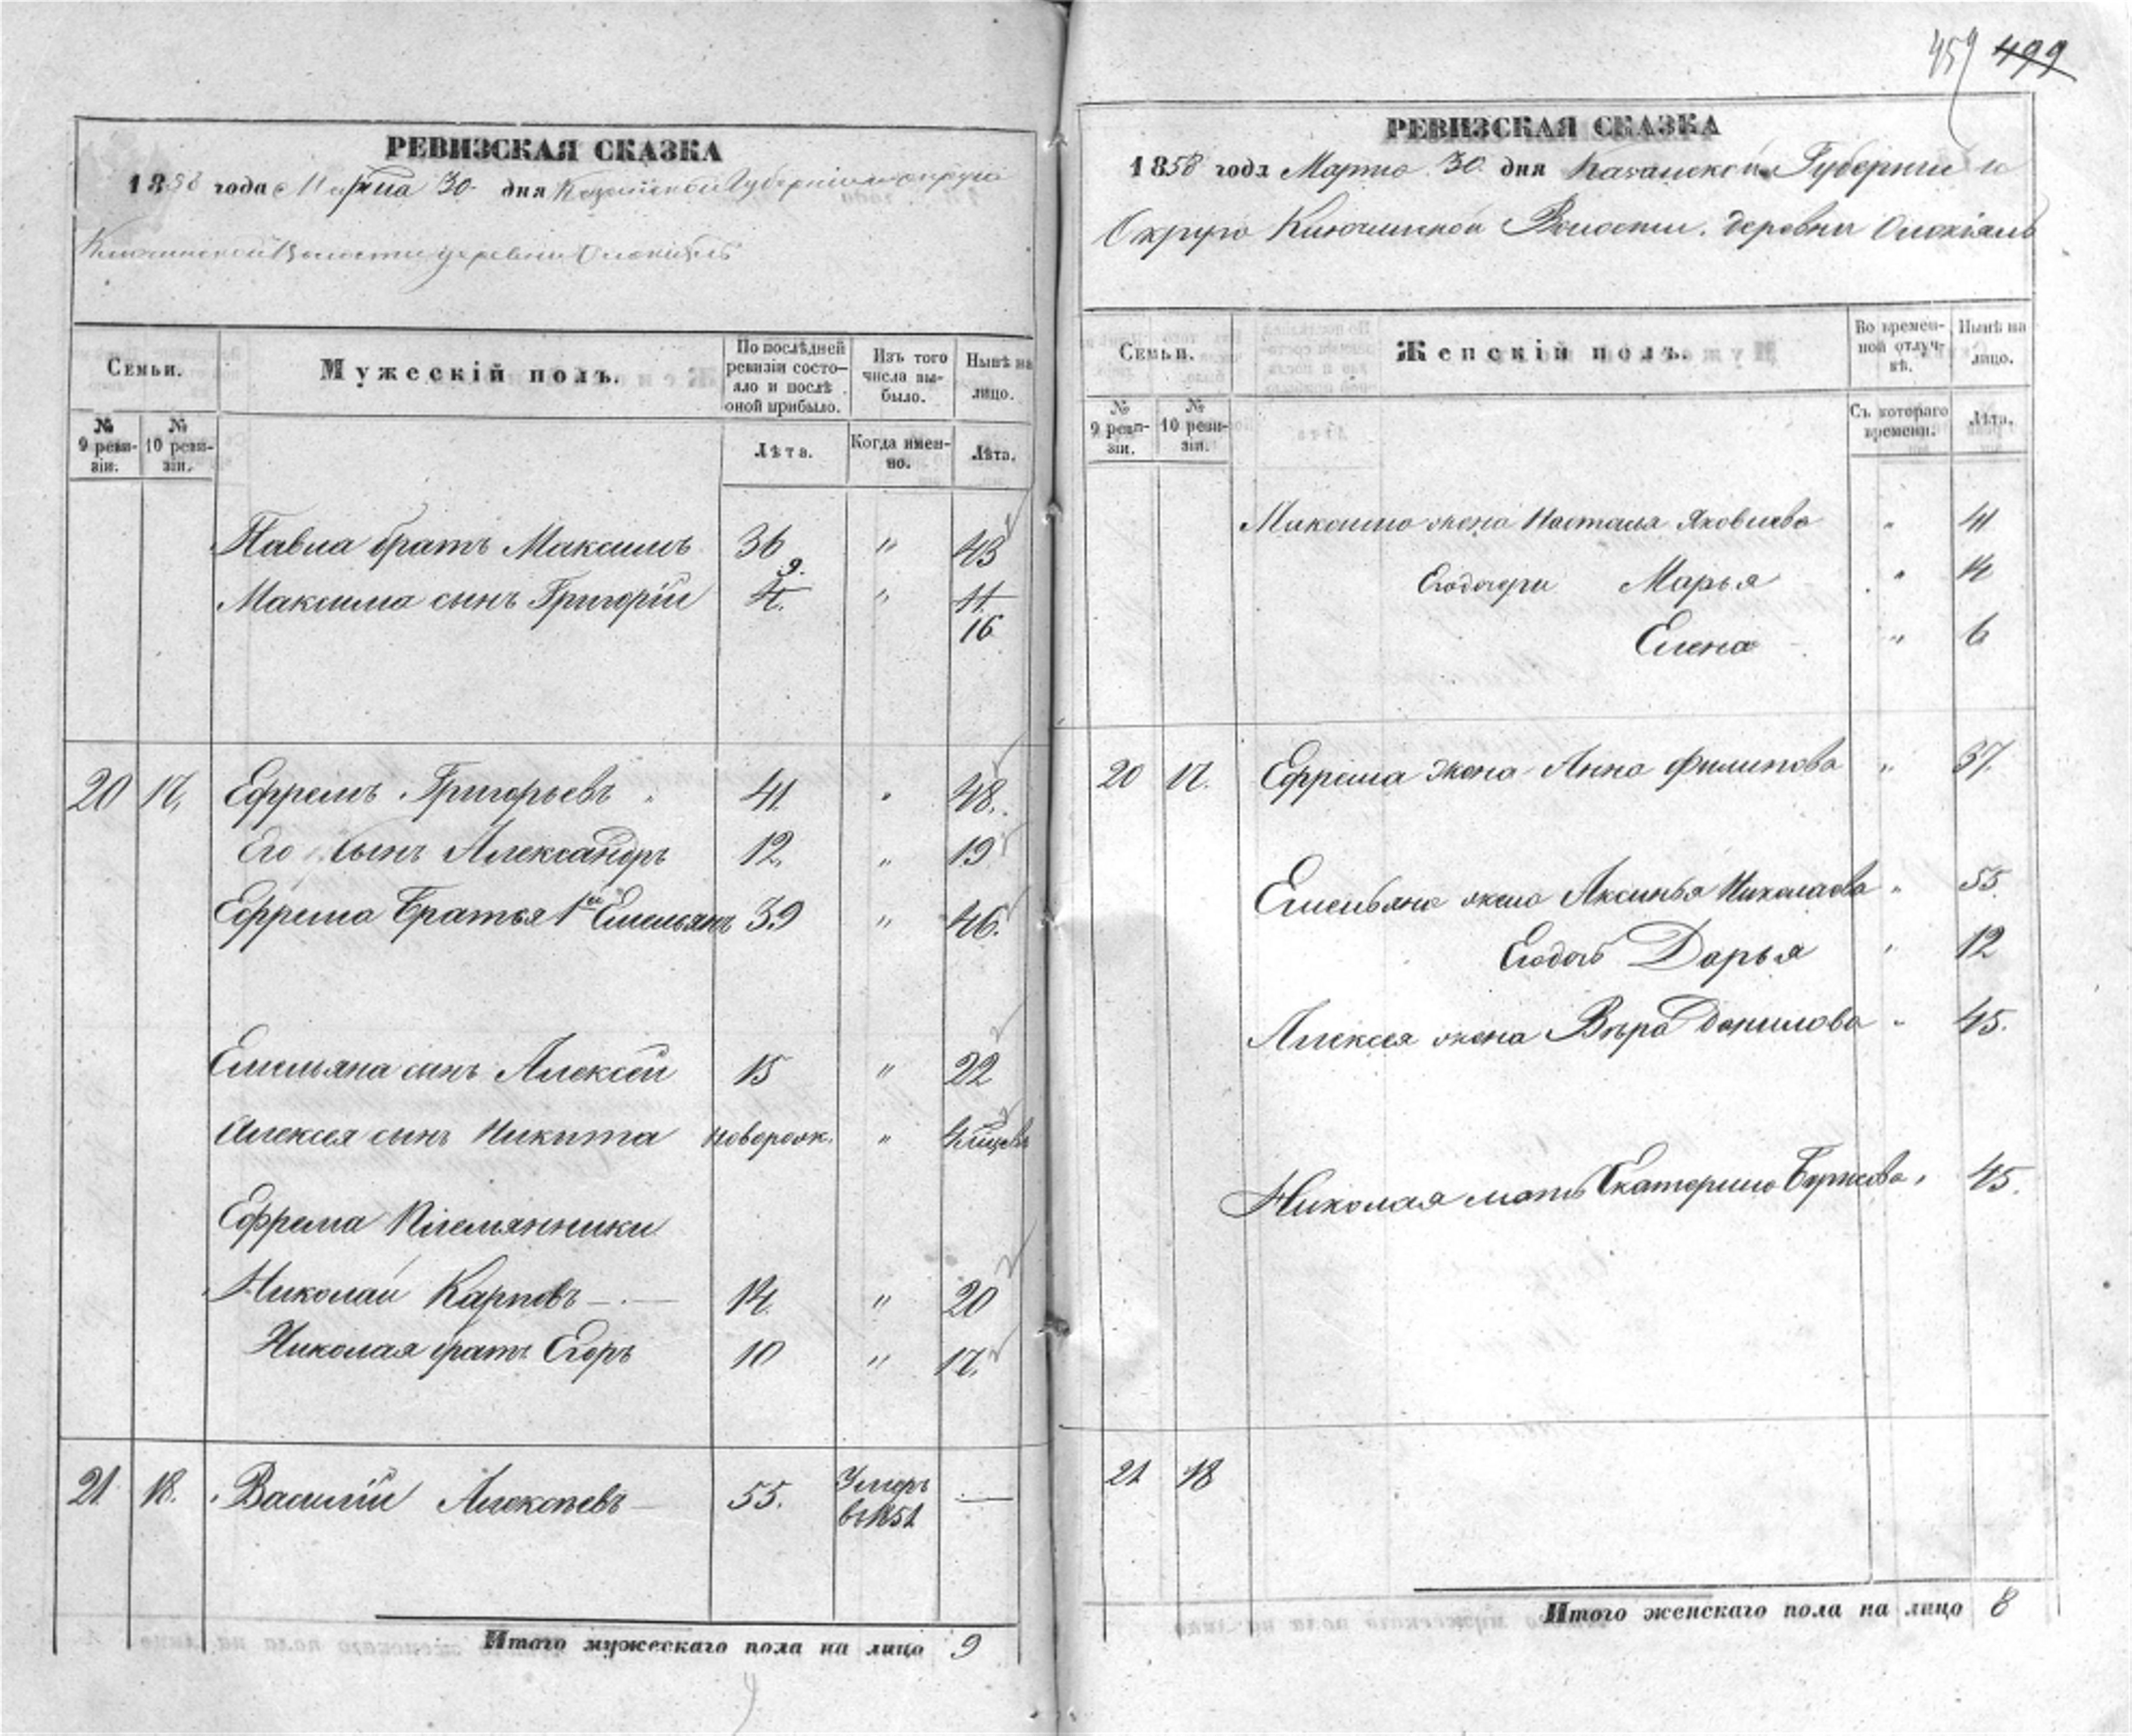 459 499
РЕВИЗСКАЯ СКАЗКА
1858 года Марта 30 дня Казанской Губернии и округа
Ключинской Волости деревни
Семьи.
Мужескій полъ.
По послѣдней ревизіи состояло и послѣ оной прибыло.
Изъ того числа выбыло.
Нынѣ на лицо.
№ 9 ревизіи.
№ 10 ревизіи.
Лѣта.
Когда именно.
Лѣта.
Павла братъ Максимъ 36 " 43
Максима сынъ Григорій 4. 9. " 11. 16
20 17. Ефремъ Григорьевъ " 41. " 48.
Его сынъ Александръ 12. " 19
Ефрема Братья 1й Емельянъ 39 " 46.
Емельяна сынъ Алексей 15 " 22
Алексея сынъ Никита новорож. "
Ефрема Племянники
Николай Карповъ — . — 14. " 20
Николая братъ Егоръ 10 " 17.
21. 18. Василій Алексѣевъ — 55. Умеръ въ 1851 —
Итого мужескаго пола на лицо 9
РЕВИЗСКАЯ СКАЗКА
1858 года Марта 30 дня Казанской Губернии и
Округа Ключинской Волости. деревни
Семьи.
Женскій полъ.
Во временной отлучкѣ.
Нынѣ на лицо.
№ 9 ревизіи.
№ 10 ревизіи.
Съ котораго времени.
Лѣта.
Максима жена Настасья Яковлева " 41
Его дочери Марья " 14
Елена " 6
20 17. Ефрема жена Анна Филипова " 37.
Емельяна жена Аксинья Николаева " 55.
Его дочь Дарья " 12
Алексея жена Вѣра Данилова " 45.
Николая мать Екатерина " 45.
21 18
Итого женскаго пола на лицо 8